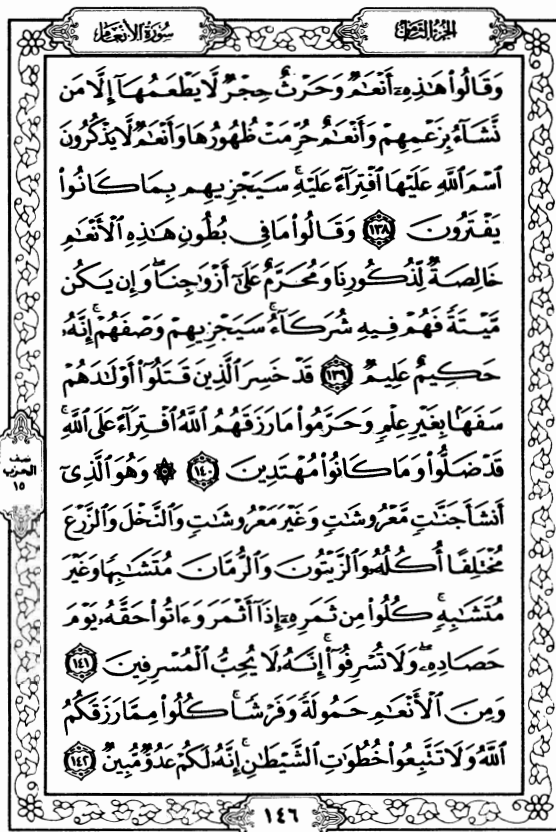 سورة الأنعام
الجزء الثامن
وَقَالُوا۟ هَـٰذِهِۦٓ أَنْعَـٰمٌ وَحَرْثٌ حِجْرٌ لَّا يَطْعَمُهَآ إِلَّا مَن
نَّشَآءُ بِزَعْمِهِمْ وَأَنْعَـٰمٌ حُرِّمَتْ ظُهُورُهَا وَأَنْعَـٰمٌ لَّا يَذْكُرُونَ
ٱسْمَ ٱللَّهِ عَلَيْهَا ٱفْتِرَآءً عَلَيْهِ ۚ سَيَجْزِيهِم بِمَا كَانُوا۟
يَفْتَرُونَ ١٣٨ وَقَالُوا۟ مَا فِى بُطُونِ هَـٰذِهِ ٱلْأَنْعَـٰمِ
خَالِصَةٌ لِّذُكُورِنَا وَمُحَرَّمٌ عَلَىٰٓ أَزْوَٰجِنَا ۖ وَإِن يَكُن
مَّيْتَةً فَهُمْ فِيهِ شُرَكَآءُ ۚ سَيَجْزِيهِمْ وَصْفَهُمْ ۚ إِنَّهُۥ
حَكِيمٌ عَلِيمٌ ١٣٩ قَدْ خَسِرَ ٱلَّذِينَ قَتَلُوٓا۟ أَوْلَـٰدَهُمْ
سَفَهًۢا بِغَيْرِ عِلْمٍ وَحَرَّمُوا۟ مَا رَزَقَهُمُ ٱللَّهُ ٱفْتِرَآءً عَلَى ٱللَّهِ ۚ
قَدْ ضَلُّوا۟ وَمَا كَانُوا۟ مُهْتَدِينَ ١٤٠ ۞ وَهُوَ ٱلَّذِىٓ
أَنشَأَ جَنَّـٰتٍ مَّعْرُوشَـٰتٍ وَغَيْرَ مَعْرُوشَـٰتٍ وَٱلنَّخْلَ وَٱلزَّرْعَ
مُخْتَلِفًا أُكُلُهُۥ وَٱلزَّيْتُونَ وَٱلرُّمَّانَ مُتَشَـٰبِهًا وَغَيْرَ
مُتَشَـٰبِهٍ ۚ كُلُوا۟ مِن ثَمَرِهِۦٓ إِذَآ أَثْمَرَ وَءَاتُوا۟ حَقَّهُۥ يَوْمَ
حَصَادِهِۦ ۖ وَلَا تُسْرِفُوٓا۟ ۚ إِنَّهُۥ لَا يُحِبُّ ٱلْمُسْرِفِينَ ١٤١
وَمِنَ ٱلْأَنْعَـٰمِ حَمُولَةً وَفَرْشًا ۚ كُلُوا۟ مِمَّا رَزَقَكُمُ
ٱللَّهُ وَلَا تَتَّبِعُوا۟ خُطُوَٰتِ ٱلشَّيْطَـٰنِ ۚ إِنَّهُۥ لَكُمْ عَدُوٌّ مُّبِينٌ ١٤٢
نصف
الحزب
١٥
١٤٦